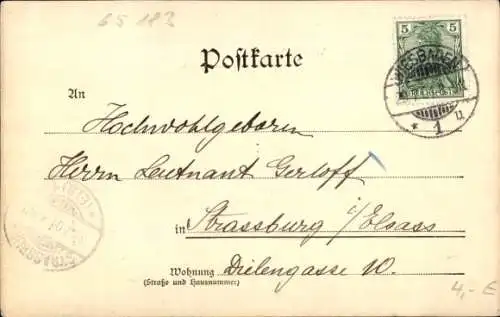 65 183
Postkarte
5 5
WIESBADEN
* 1 u
An
Hochwohlgeboren
Herrn Leutnant Gerloff
in Strassburg i/Elsass
Wohnung Dielengasse 10.
(Straße und Hausnummer)
4,- E